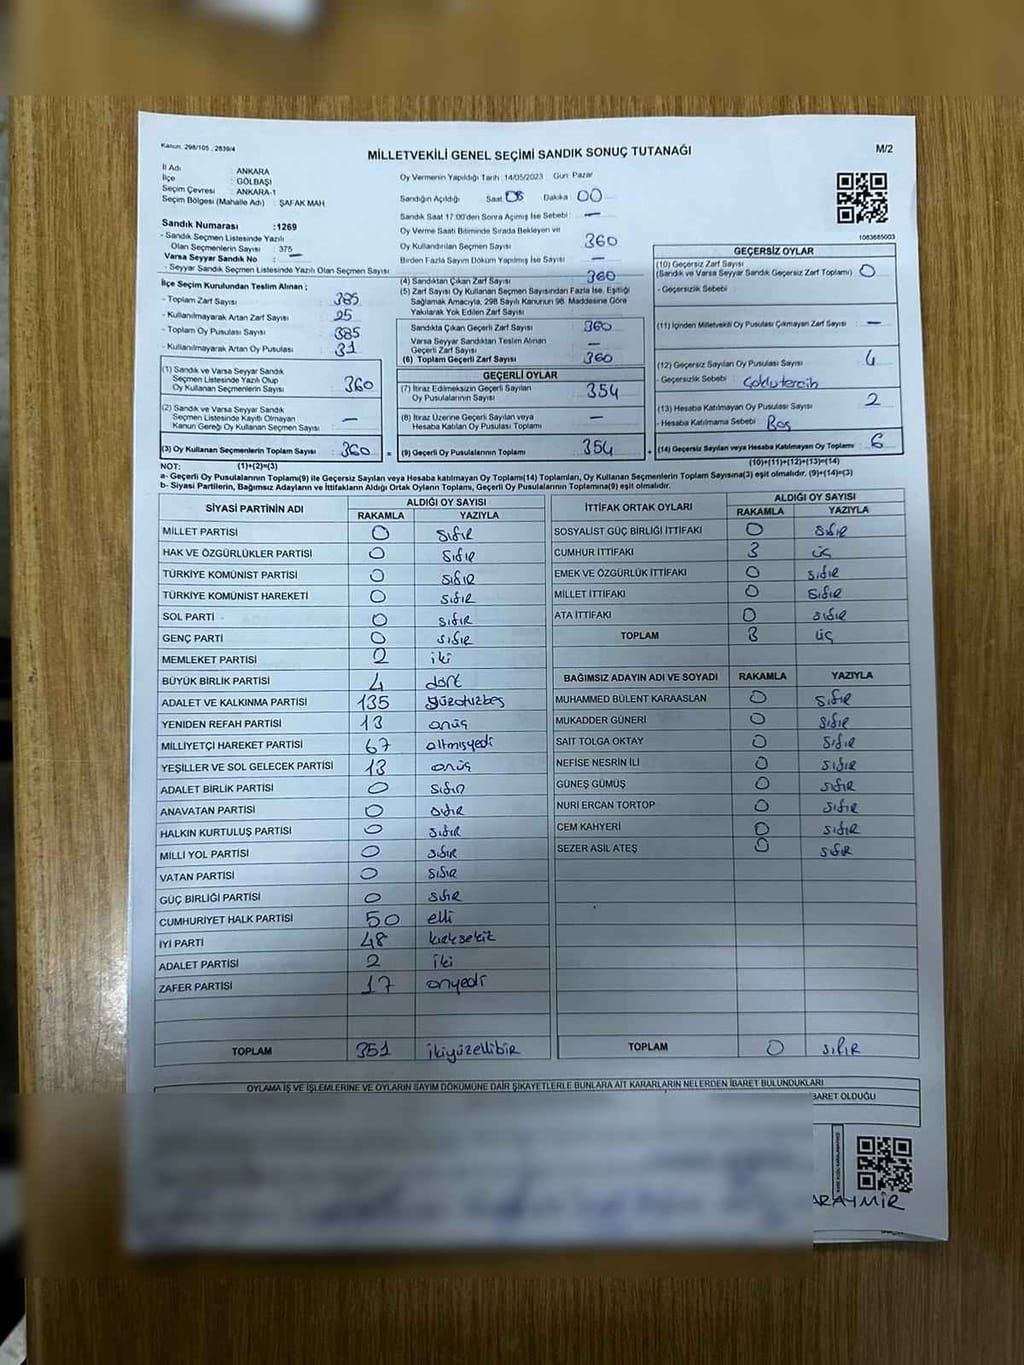 Kanun, 298/105 , 2839/4
MİLLETVEKİLİ GENEL SEÇİMİ SANDIK SONUÇ TUTANAĞI
M/2
İl Adı : ANKARA
İlçe : GÖLBAŞI
Seçim Çevresi : ANKARA-1
Seçim Bölgesi (Mahalle Adı) : ŞAFAK MAH
Sandık Numarası :1269
- Sandık Seçmen Listesinde Yazılı
Olan Seçmenlerin Sayısı : 375
Varsa Seyyar Sandık No : —
- Seyyar Sandık Seçmen Listesinde Yazılı Olan Seçmen Sayısı
Oy Vermenin Yapıldığı Tarih :14/05/2023 Gün: Pazar
Sandığın Açıldığı Saat: 08 Dakika : 00
Sandık Saat 17:00'den Sonra Açılmış İse Sebebi : —
Oy Verme Saati Bitiminde Sırada Bekleyen ve
Oy Kullandırılan Seçmen Sayısı 360
Birden Fazla Sayım Döküm Yapılmış İse Sayısı : —
1083685003
İlçe Seçim Kurulundan Teslim Alınan ;
- Toplam Zarf Sayısı : 385
- Kullanılmayarak Artan Zarf Sayısı : 25
- Toplam Oy Pusulası Sayısı : 385
- Kullanılmayarak Artan Oy Pusulası : 31
(1) Sandık ve Varsa Seyyar Sandık
Seçmen Listesinde Yazılı Olup
Oy Kullanan Seçmenlerin Sayısı : 360
(2) Sandık ve Varsa Seyyar Sandık
Seçmen Listesinde Kayıtlı Olmayan
Kanun Gereği Oy Kullanan Seçmen Sayısı : —
(3) Oy Kullanan Seçmenlerin Toplam Sayısı : 360 =
(4) Sandıktan Çıkan Zarf Sayısı : 360
(5) Zarf Sayısı Oy Kullanan Seçmen Sayısından Fazla İse, Eşitliği
Sağlamak Amacıyla, 298 Sayılı Kanunun 98. Maddesine Göre
Yakılarak Yok Edilen Zarf Sayısı :
Sandıkta Çıkan Geçerli Zarf Sayısı : 360
Varsa Seyyar Sandıktan Teslim Alınan
Geçerli Zarf Sayısı : —
(6) Toplam Geçerli Zarf Sayısı : 360
GEÇERLİ OYLAR
(7) İtiraz Edilmeksizin Geçerli Sayılan
Oy Pusulalarının Sayısı : 354
(8) İtiraz Üzerine Geçerli Sayılan veya
Hesaba Katılan Oy Pusulası Toplamı : —
(9) Geçerli Oy Pusulalarının Toplamı : 354 +
GEÇERSİZ OYLAR
(10) Geçersiz Zarf Sayısı
(Sandık ve Varsa Seyyar Sandık Geçersiz Zarf Toplamı) : 0
- Geçersizlik Sebebi :
(11) İçinden Milletvekili Oy Pusulası Çıkmayan Zarf Sayısı : —
(12) Geçersiz Sayılan Oy Pusulası Sayısı : 4
- Geçersizlik Sebebi :
(13) Hesaba Katılmayan Oy Pusulası Sayısı : 2
- Hesaba Katılmama Sebebi : Boş
(14) Geçersiz Sayılan veya Hesaba Katılmayan Oy Toplamı : 6
NOT: (1)+(2)=(3) (10)+(11)+(12)+(13)=(14)
a- Geçerli Oy Pusulalarının Toplamı(9) ile Geçersiz Sayılan veya Hesaba katılmayan Oy Toplamı(14) Toplamları, Oy Kullanan Seçmenlerin Toplam Sayısına(3) eşit olmalıdır. (9)+(14)=(3)
b- Siyasi Partilerin, Bağımsız Adayların ve İttifakların Aldığı Ortak Oyların Toplamı, Geçerli Oy Pusulalarının Toplamına(9) eşit olmalıdır.
SİYASİ PARTİNİN ADI ALDIĞI OY SAYISI
RAKAMLA YAZIYLA
MİLLET PARTİSİ 0 sıfır
HAK VE ÖZGÜRLÜKLER PARTİSİ 0 sıfır
TÜRKİYE KOMÜNİST PARTİSİ 0 sıfır
TÜRKİYE KOMÜNİST HAREKETİ 0 sıfır
SOL PARTİ 0 sıfır
GENÇ PARTİ 0 sıfır
MEMLEKET PARTİSİ 2 iki
BÜYÜK BİRLİK PARTİSİ 4 dört
ADALET VE KALKINMA PARTİSİ 135 yüzotuzbeş
YENİDEN REFAH PARTİSİ 13 onüç
MİLLİYETÇİ HAREKET PARTİSİ 67 altmışyedi
YEŞİLLER VE SOL GELECEK PARTİSİ 13 onüç
ADALET BİRLİK PARTİSİ 0 sıfır
ANAVATAN PARTİSİ 0 sıfır
HALKIN KURTULUŞ PARTİSİ 0 sıfır
MİLLİ YOL PARTİSİ 0 sıfır
VATAN PARTİSİ 0 sıfır
GÜÇ BİRLİĞİ PARTİSİ 0 sıfır
CUMHURİYET HALK PARTİSİ 50 elli
İYİ PARTİ 48 kırksekiz
ADALET PARTİSİ 2 iki
ZAFER PARTİSİ 17 onyedi
TOPLAM 351 ikiyüzellibir
İTTİFAK ORTAK OYLARI ALDIĞI OY SAYISI
RAKAMLA YAZIYLA
SOSYALİST GÜÇ BİRLİĞİ İTTİFAKI 0 sıfır
CUMHUR İTTİFAKI 3 üç
EMEK VE ÖZGÜRLÜK İTTİFAKI 0 sıfır
MİLLET İTTİFAKI 0 sıfır
ATA İTTİFAKI 0 sıfır
TOPLAM 3 üç
BAĞIMSIZ ADAYIN ADI VE SOYADI RAKAMLA YAZIYLA
MUHAMMED BÜLENT KARAASLAN 0 sıfır
MUKADDER GÜNERİ 0 sıfır
SAİT TOLGA OKTAY 0 sıfır
NEFİSE NESRİN İLİ 0 sıfır
GÜNEŞ GÜMÜŞ 0 sıfır
NURİ ERCAN TORTOP 0 sıfır
CEM KAHYERİ 0 sıfır
SEZER ASİL ATEŞ 0 sıfır
TOPLAM 0 sıfır
OYLAMA İŞ VE İŞLEMLERİNE VE OYLARIN SAYIM DÖKÜMÜNE DAİR ŞİKAYETLERLE BUNLARA AİT KARARLARIN NELERDEN İBARET BULUNDUKLARI
BARET OLDUĞU